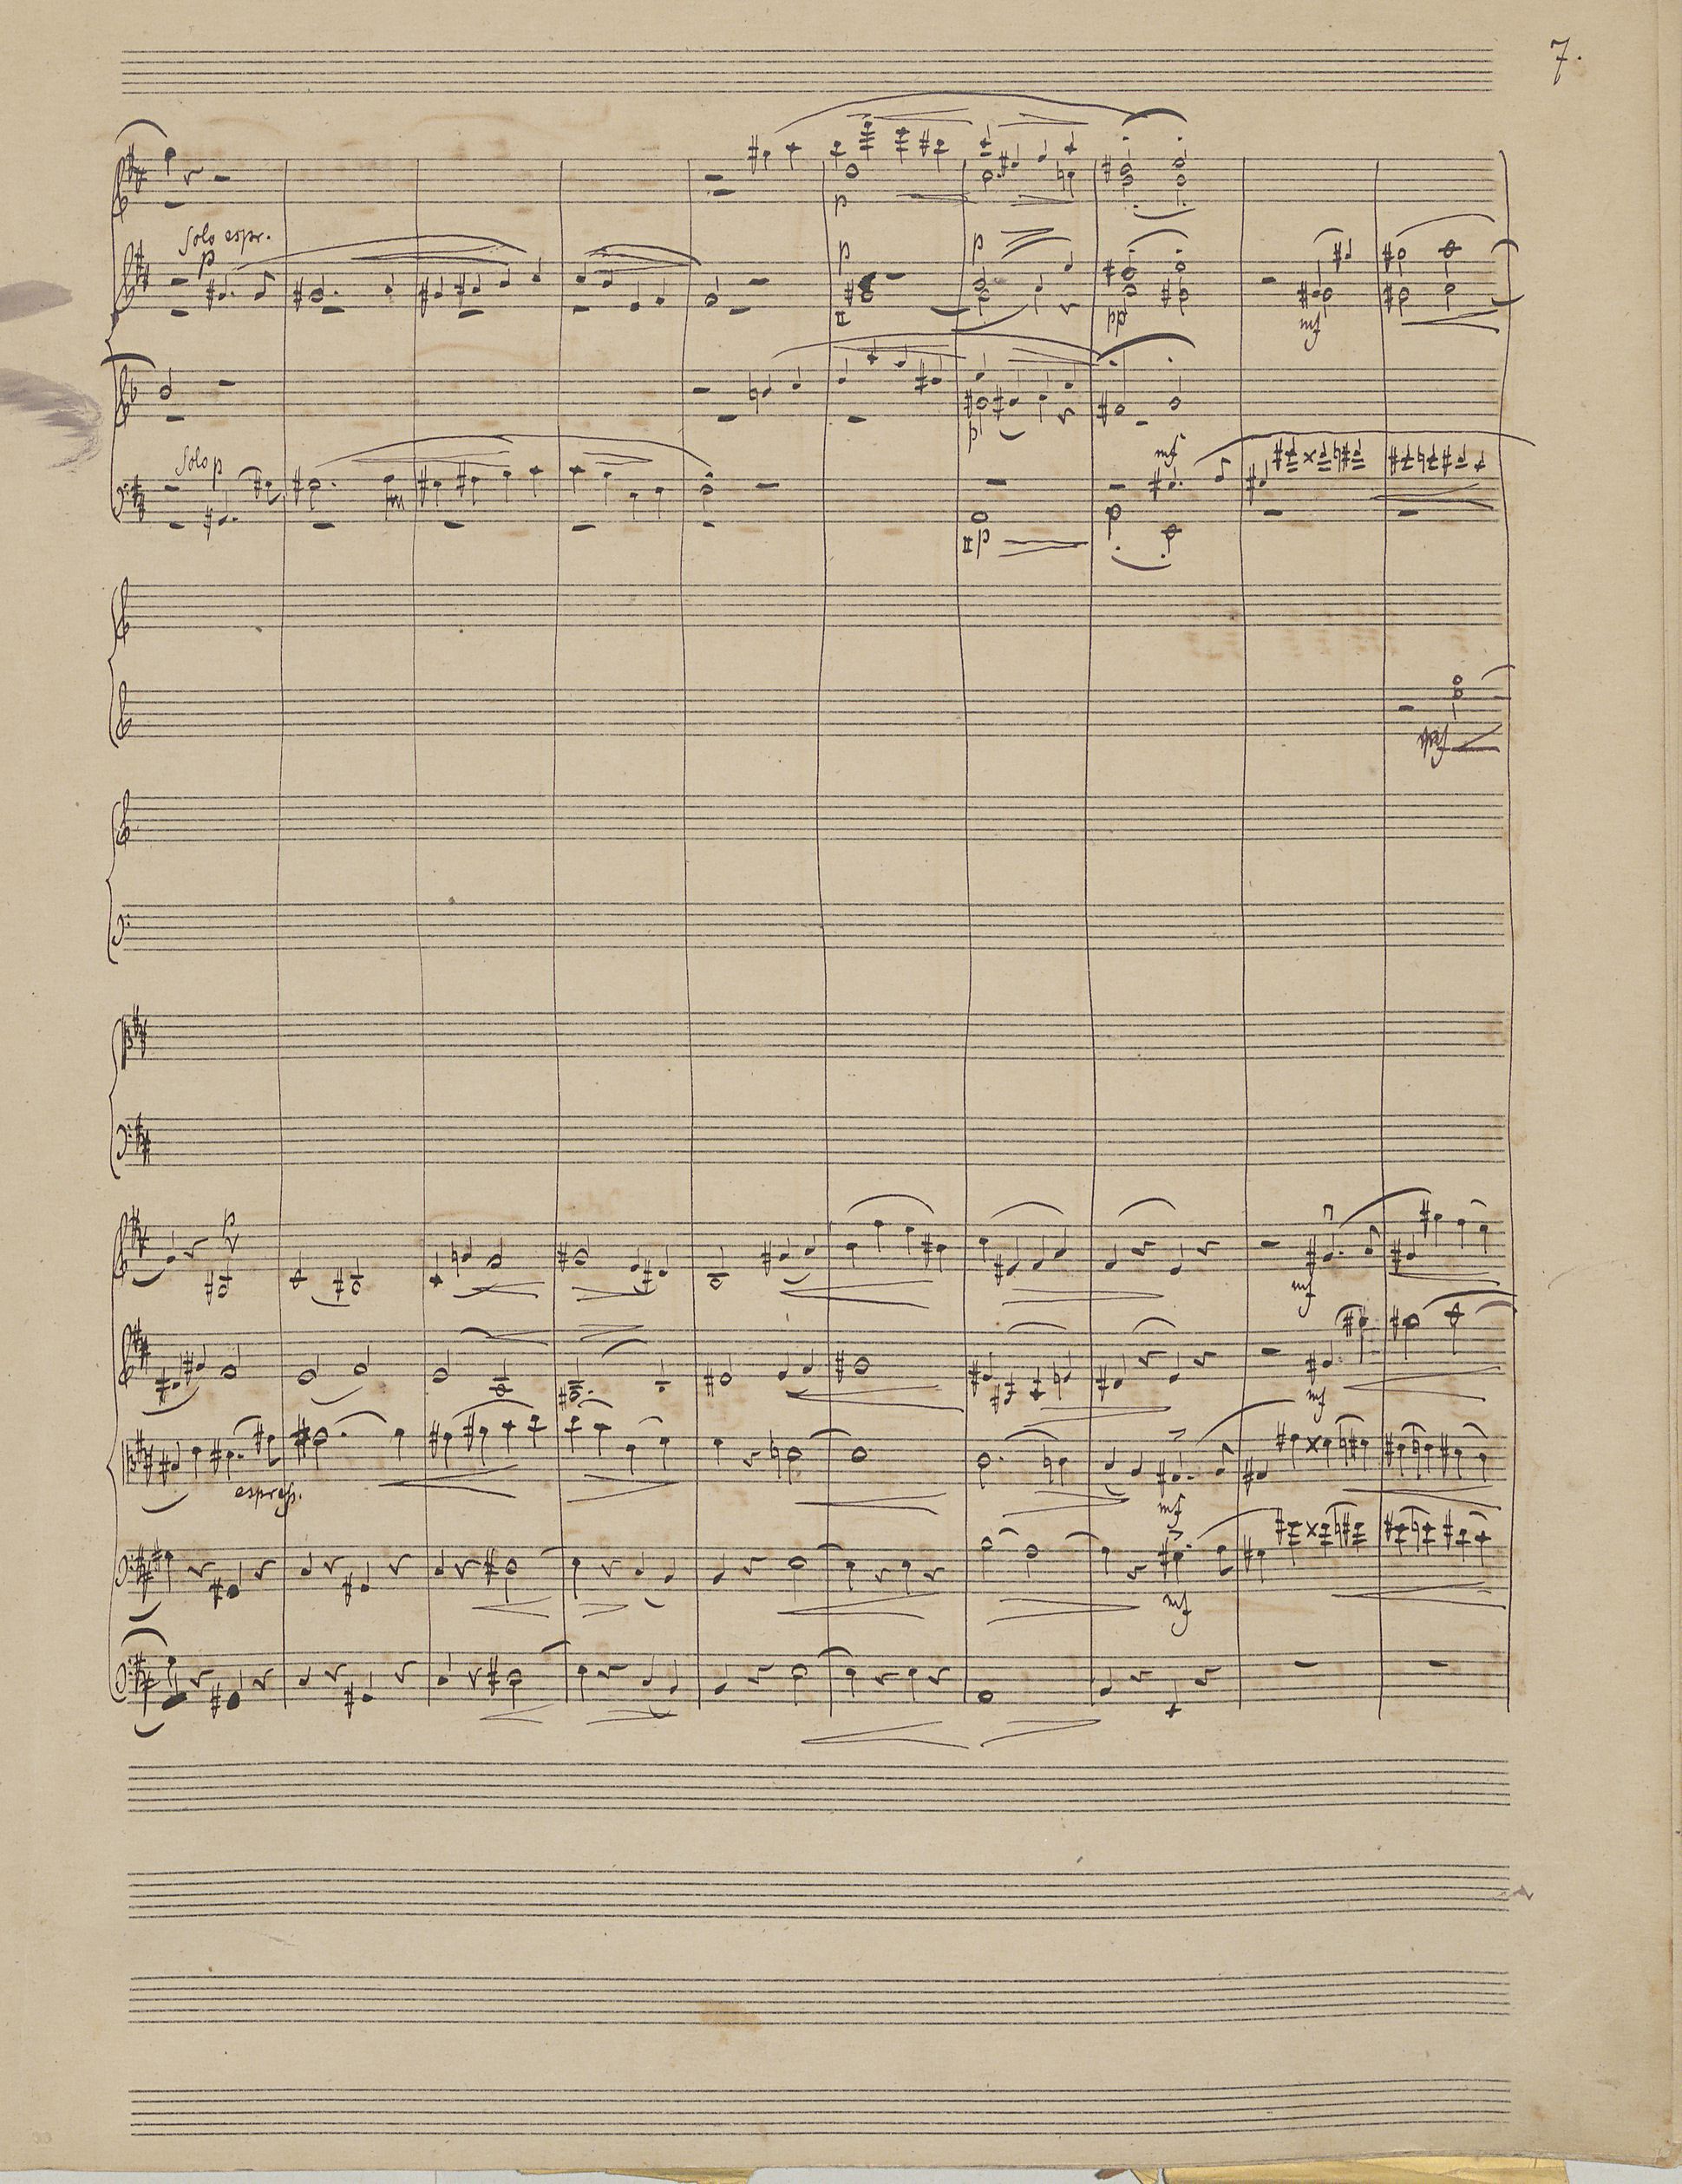 7.
Solo espr.
p
p
p
p
II
pp
mf
p
Solo p
mf
II p
mf
p
mf
mf
espress.
mf
mf